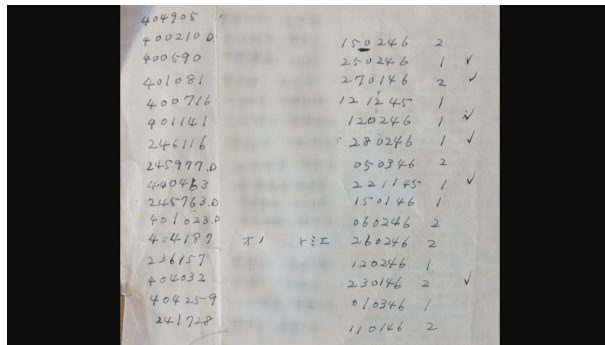 404905
400210 D. 150246 2
400590 250246 1 ✓
401081 270146 2 ✓
400716 121245 1
401141 120246 1 ✓
246116 280246 1 ✓
245977.D 050346 2
440463 221145 1 ✓
245763.D 150146 1
401023.D 060246 2
404187 オノ トミエ 260246 2
236157 120246 1
404032 230146 2 ✓
404259 010346 1
241728 110146 2